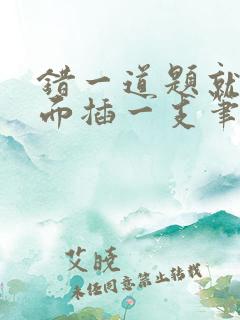 错一道题就
而插一支笔
艾晓
未经同意禁止转载